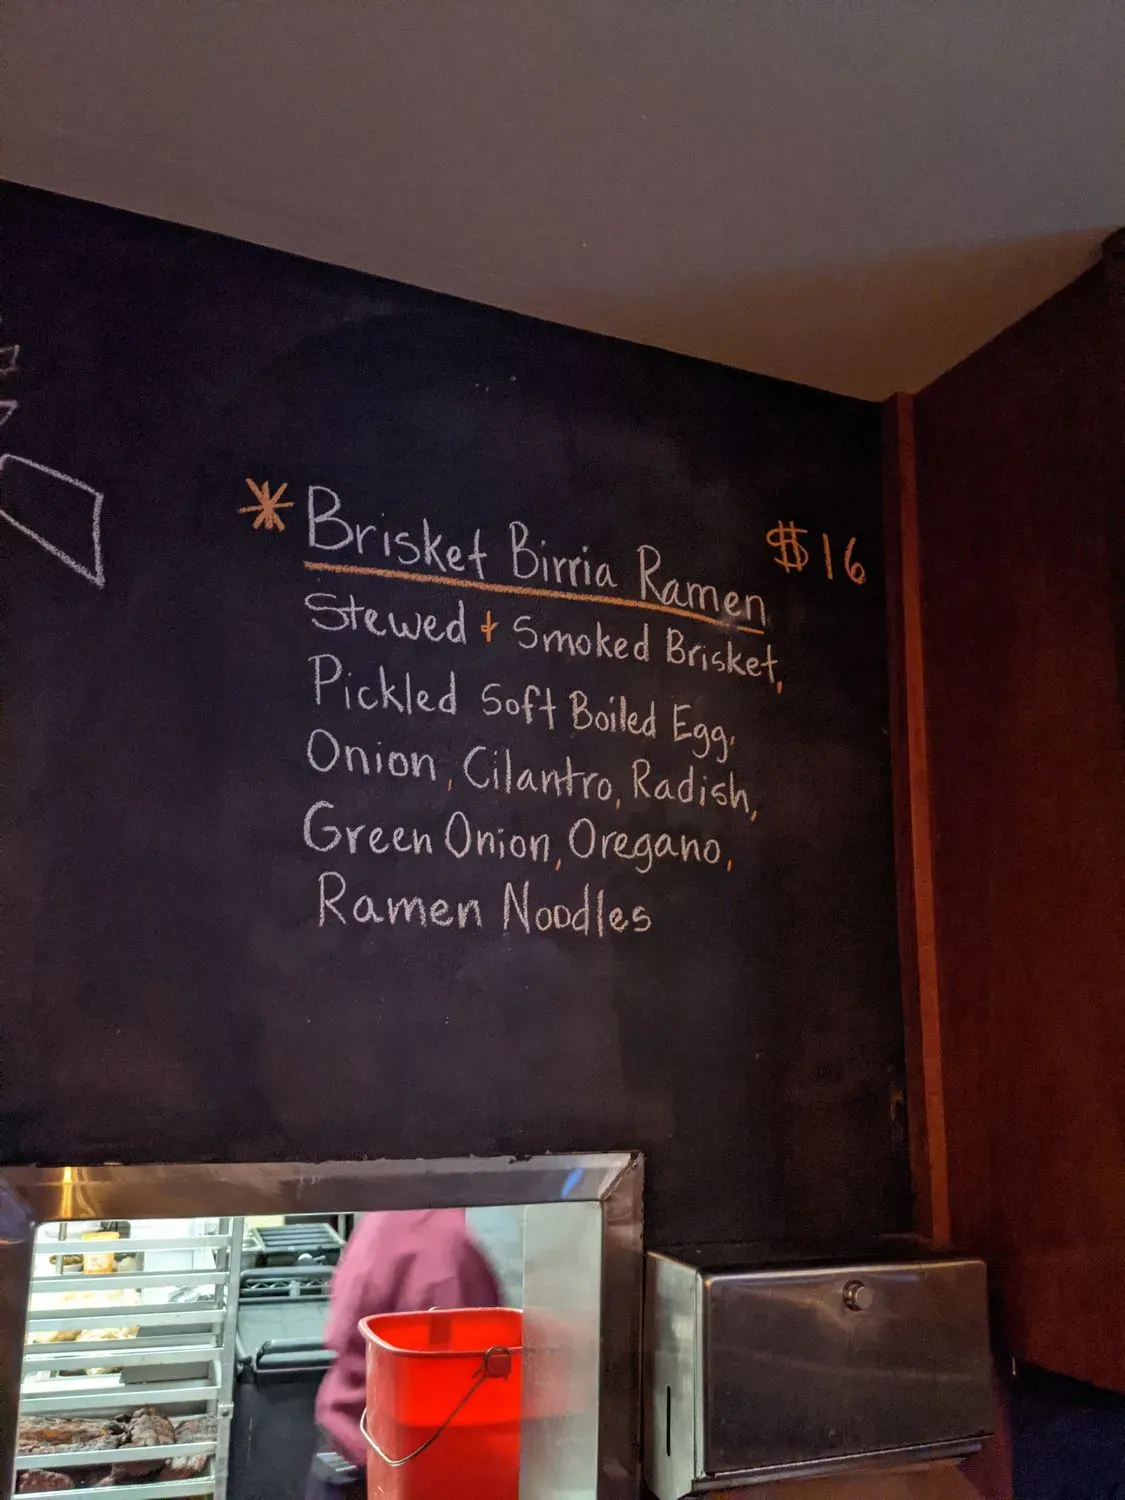 * Brisket Birria Ramen $16
Stewed + Smoked Brisket,
Pickled Soft Boiled Egg,
Onion, Cilantro, Radish,
Green Onion, Oregano,
Ramen Noodles